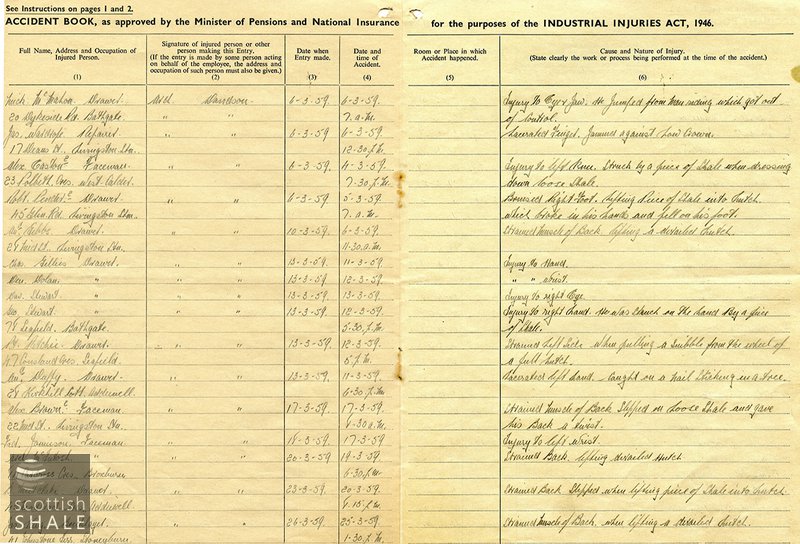 See Instructions on pages 1 and 2.
ACCIDENT BOOK, as approved by the Minister of Pensions and National Insurance for the purposes of the INDUSTRIAL INJURIES ACT, 1946.
Full Name, Address and Occupation of Injured Person. (1)
Signature of injured person or other person making this Entry. (If the entry is made by some person acting on behalf of the employee, the address and occupation of such person must also be given.) (2)
Date when Entry made. (3)
Date and time of Accident. (4)
Room or Place in which Accident happened. (5)
Cause and Nature of Injury. (State clearly the work or process being performed at the time of accident.) (6)
Mich. McMahon Drawer. Davidson 6-3-59. 6-3-59. Injury to Eye & Jaw. He Jumped from Man riding which got out
20 Rd. Bathgate. " " 7. a.m. of Control.
Jas. Repairer " " 6-3-59 6-3-59. Lacerated Finger. Jammed against Low Crown.
17 Means St. Livingston Stn. 12-30 p.m.
Alex. Easton Faceman " " 6-3-59 4-3-59. Injury to left Knee. Struck by a piece of Shale when dressing
23 Polbeth Cres. West Calder. 7-30 p.m. down loose Shale.
Robt. Drawer " " 6-3-59. 5-3-59. Bruised Right Foot. Lifting Piece of Shale into hutch
45 Glen Rd. Livingston Stn. 7. a.m. which broke in his hands and fell on his foot.
Gibbs. Drawer. " " 10-3-59. 6-3-59. Strained Muscle of Back. lifting a derailed hutch.
Livingston Stn. 11-30 a.m.
Gillies Drawer. " " 13-3-59 11-3-59. Injury to Hand.
Dolan. " " " 13-3-59. 12-3-59. " " wrist.
Stewart. " " 13-3-59. 13-3-59. Injury to right Eye.
Stewart. " " " 13-3-59. 12-3-59. Injury to right hand. He was struck on the hand by a piece
78 Leafield. Bathgate. 5-30. p.m. of Shale.
Ritchie. Drawer. " " 13-3-59. 12-3-59. Strained Left Side when pulling a Snibble from the wheel of
Cres. Seafield 5 p.m. a full hutch.
Duffy. Drawer. " " 13-3-59. 11-3-59. Lacerated left hand. Caught on a nail sticking in a
28 Kirkhill Cott. Addiewell. 6-30. p.m.
Alex Brown Faceman " " 17-3-59. 17-3-59. Strained Muscle of Back Slipped on Loose Shale and gave
22 Livingston Stn. 8-30 a.m. his Back a twist.
Jamieson. Faceman " " 18-3-59. 17-3-59. Injury to left wrist.
" " 20-3-59. 19-3-59. Strained Back. lifting derailed Hutch
Cres. Broxburn. 6-30. p.m.
Drawer. " " 23-3-59. 20-3-59. Strained Back Slipped when lifting piece of Shale into hutch.
Addiewell 4-15. p.m.
" " 26-3-59. 25-3-59. Strained Muscle of Back. when lifting a derailed hutch.
Terr. Stoneyburn. 1-30. p.m.
scottish
SHALE